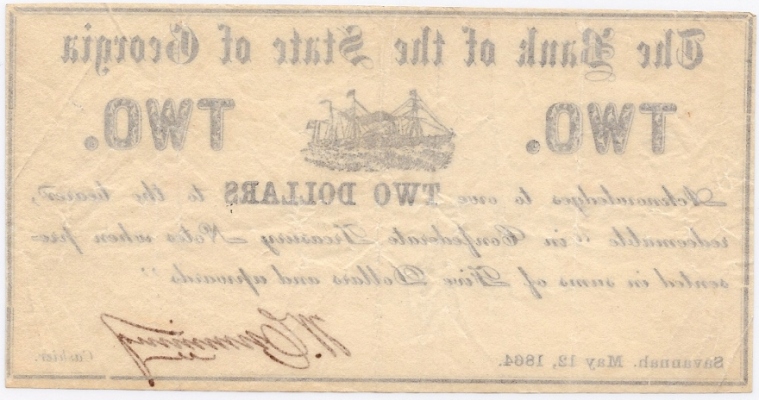 The Bank of the State of Georgia
TWO. TWO.
Acknowledges to owe TWO DOLLARS to the bearer,
redeemable "in Confederate Treasury Notes when pre-
sented in sums of Five Dollars and upwards"
Savannah. May 12, 1864. Cashier.